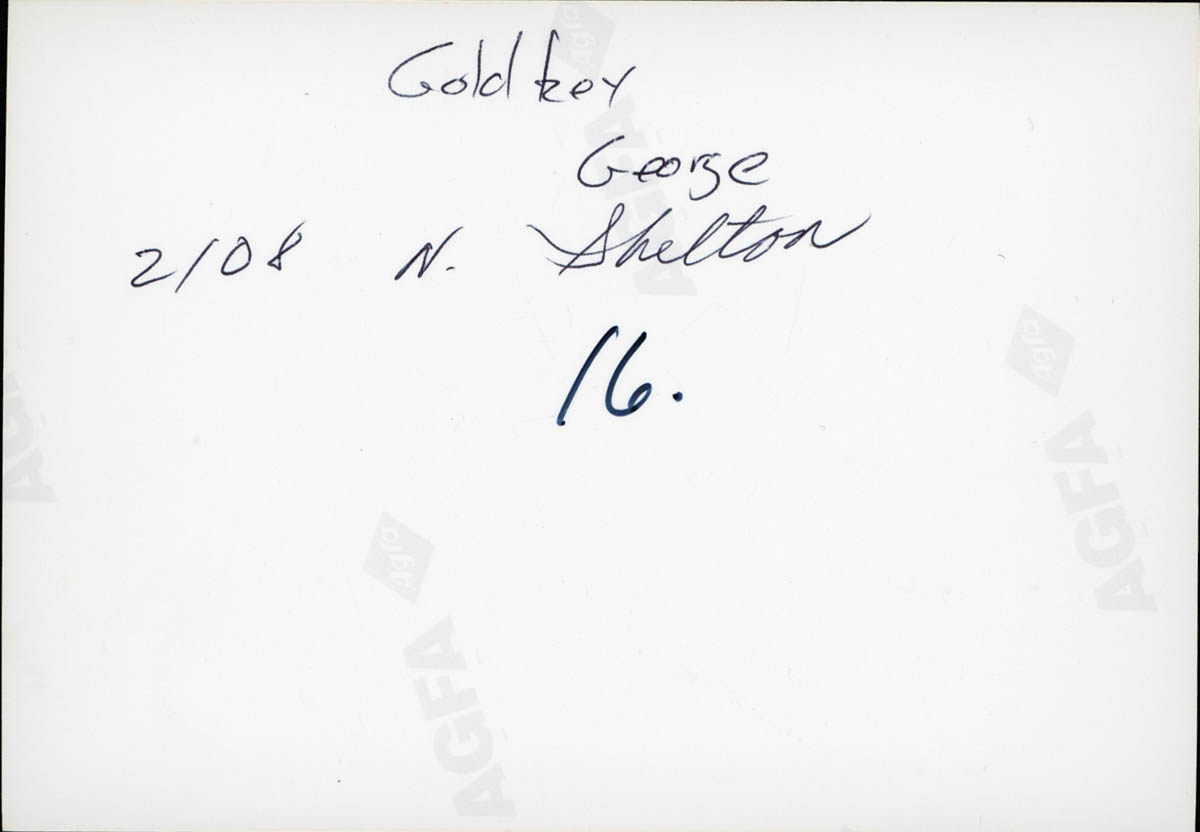 Gold key
George
2108 N. Shelton
16.
Agfa
AGFA
Agfa
AGFA
Agfa
AGFA